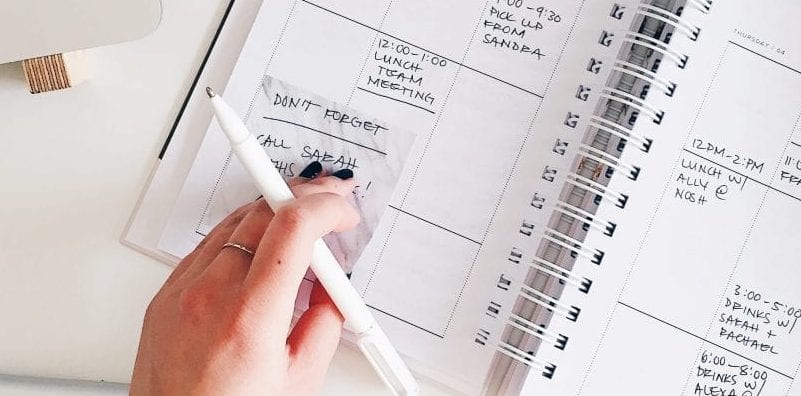 9:30
PICK UP
FROM
SANDRA
12:00-1:00
LUNCH
TEAM
MEETING
DON'T FORGET
CALL SARAH
THIS
!
THURSDAY | 04
12PM-2PM
LUNCH W/
ALLY @
NOSH
3:00-5:00
DRINKS W/
SARAH +
RACHAEL
6:00-8:00
DRINKS W/
ALEXA @